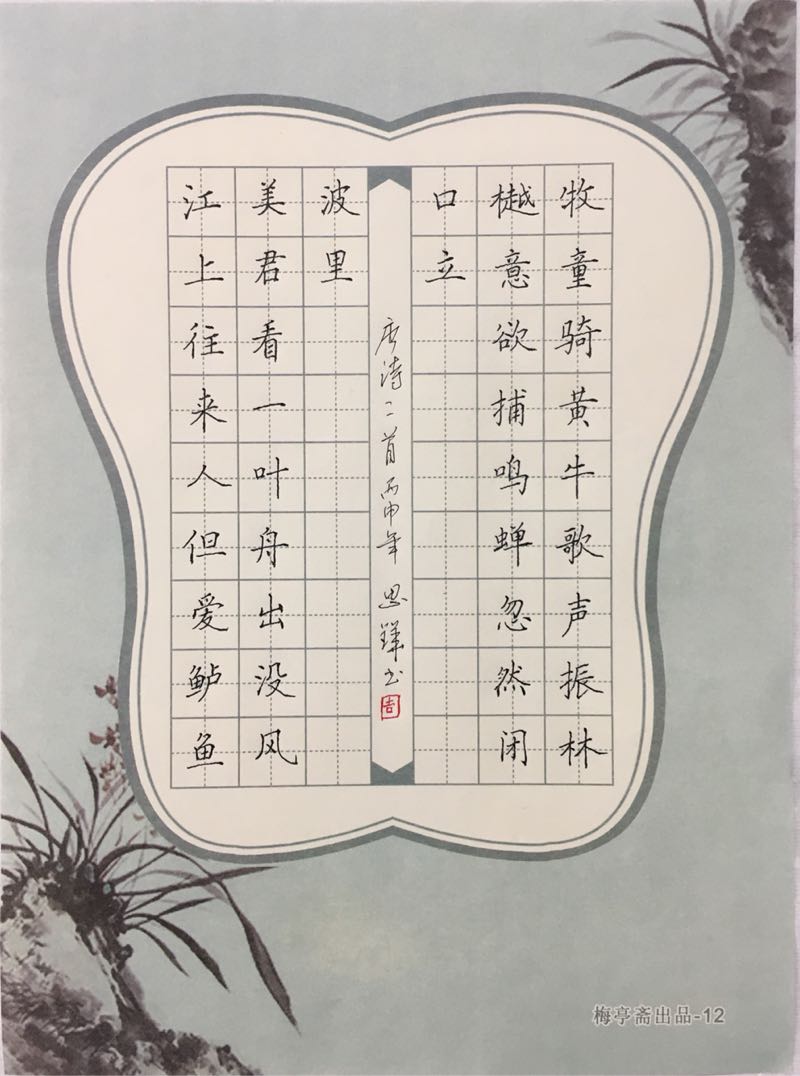 牧童骑黄牛歌声振林
樾意欲捕鸣蝉忽然闭
口立
江上往来人但爱鲈鱼
美君看一叶舟出没风
波里
唐诗二首 丙申年 思书
吉
梅亭斋出品-12